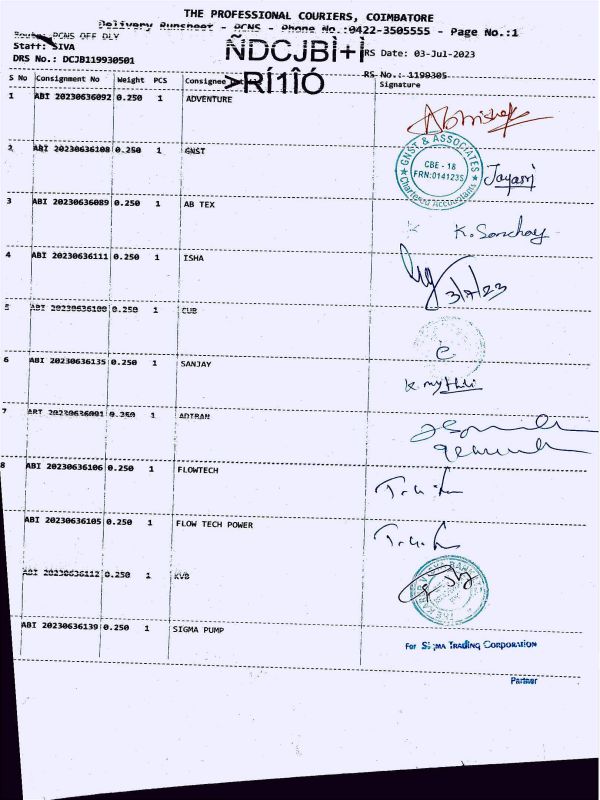 THE PROFESSIONAL COURIERS, COIMBATORE
Delivery Runsheet - PCNS - Phone No.:0422-3505555 - Page No.:1
Route: PCNS OFF DLY
Staff: SIVA
DRS No.: DCJB119930501
ÑDCJBÌ+Ì
>RÍ1ÎÓ
RS Date: 03-Jul-2023
RS No.: 1199305
S No Consignment No Weight PCS Consignee Signature
1 ABI 20230636092 0.250 1 ADVENTURE Abhishek
2 ABI 20230636108 0.250 1 GNST
GNST & ASSOCIATES
CBE - 18
FRN:014123S
Chartered Accountants
Jayasri
3 ABI 20230636089 0.250 1 AB TEX K. Sanchay
4 ABI 20230636111 0.250 1 ISHA 3/7/23
5 ABI 20230636100 0.250 1 CUB
6 ABI 20230636135 0.250 1 SANJAY K. mythili
7 ABI 20230636091 0.250 1
8 ABI 20230636106 0.250 1 FLOWTECH
ABI 20230636105 0.250 1 FLOW TECH POWER
ABI 20230636112 0.250 1 KVB
ABI 20230636139 0.250 1 SIGMA PUMP
For SIGMA TRADING CORPORATION
Partner